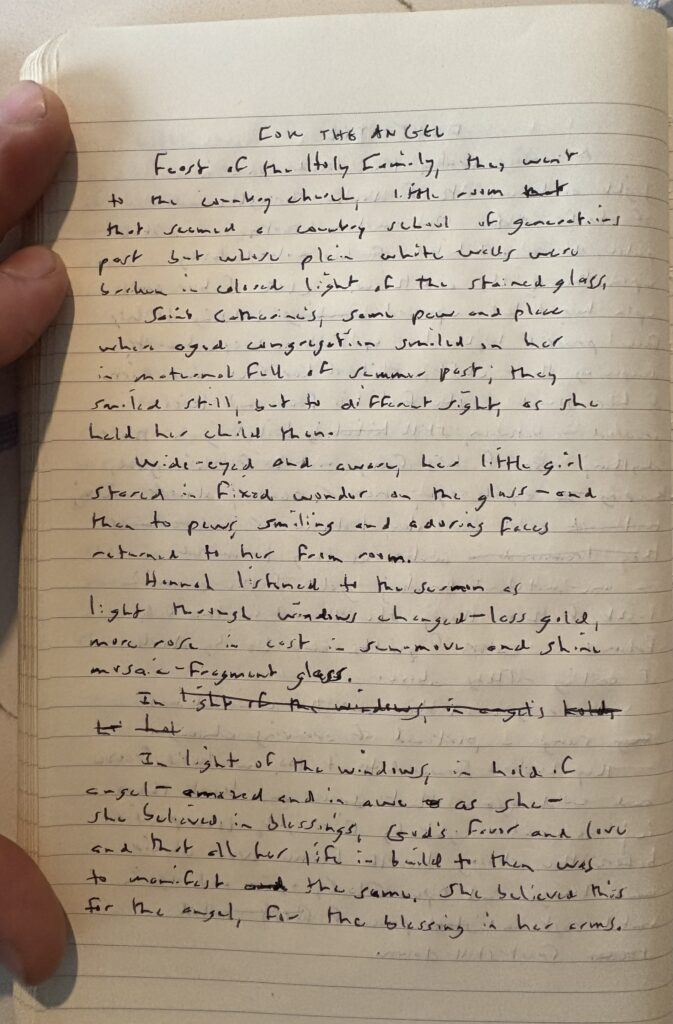 FOR THE ANGEL
Feast of the Holy Family, they went
to the country church, little room that
that seemed a country school of generations
past but whose plain white walls were
broken in colored light of the stained glass.
Saint Catherine's, same pew and place
when aged congregation smiled on her
in maternal full of summer past; they
smiled still, but to different sight, as she
held her child then.
Wide-eyed and aware, her little girl
stared in fixed wonder on the glass—and
then to pews, smiling and adoring faces
returned to her from room.
Hannah listened to the sermon as
light through windows changed—less gold,
more rose in cast in sun-move and shine
mosaic-fragment glass.
In light of the windows, in angel's hold,
hol
In light of the windows, in hold of
angel— amazed and in awe as she—
she believed in blessings, God's favor and love
and that all her life in build to then was
to manifest and the same. She believed this
for the angel, for the blessing in her arms.